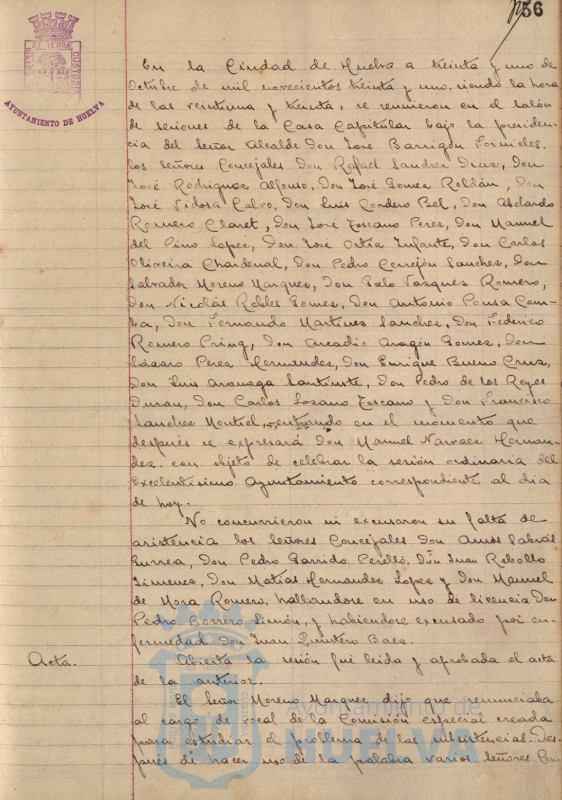 56
AYUNTAMIENTO DE HUELVA
En la Ciudad de Huelva a treinta y uno de
Octubre de mil novecientos treinta y uno, siendo la hora
de las veintiuna y treinta, se reunieron en el salón
de sesiones de la Casa Capitular bajo la presiden-
cia del Señor Alcalde Don José Barrigón Fornieles,
los Señores Concejales Don Rafael Sanchez Diaz, Don
José Rodriguez Alfonso, Don José Gomez Roldán, Don
José Vidosa Calvo, Don Luis Cordero Bel, Don Abelardo
Romero Claret, Don José Toscano Perez, Don Manuel
del Pino Lopez, Don José Ostia Infante, Don Carlos
Oliveira Chardenal, Don Pedro Cerrejon Sanchez, Don
Salvador Moreno Marquez, Don Galo Vazquez Romero,
Don Nicolás Robles Gomez, Don Antonio Pousa Cam-
ba, Don Fernando Martinez Sanchez, Don Federico
Romero Pring, Don Arcadio Aragón Gomez, Don
Lázaro Perez Hernandez, Don Enrique Bueno Cruz,
Don Luis Don Pedro de los Reyes
Duran, Don Carlos Lozano Toscano y Don Francisco
Sanchez Montiel, entrando en el momento que
después se expresará Don Manuel Narvaez Hernan-
dez. con objeto de celebrar la sesión ordinaria del
Excelentísimo Ayuntamiento correspondiente al dia
de hoy.
No concurrieron ni excusaron su falta de
asistencia los Señores Concejales Don Amós Sabrás
Gurrea, Don Pedro Garrido Perelló, Don Juan Rebollo
Jimenez, Don Matías Hernandez Lopez y Don Manuel
de Mora Romero, hallandose en uso de licencia Don
Pedro Borrero Limón, y habiendose excusado por en-
fermedad Don Juan Quintero Baez.
Acta. Abierta la sesión fué leida y aprobada el acta
de la anterior.
El Señor Moreno Marquez dijo que renunciaba
al cargo de vocal de la Comisión especial creada
para estudiar el problema de las subsistencias. Des-
pués de hacer uso de la palabra varios Señores Con-
Ayuntamiento de
HUELVA